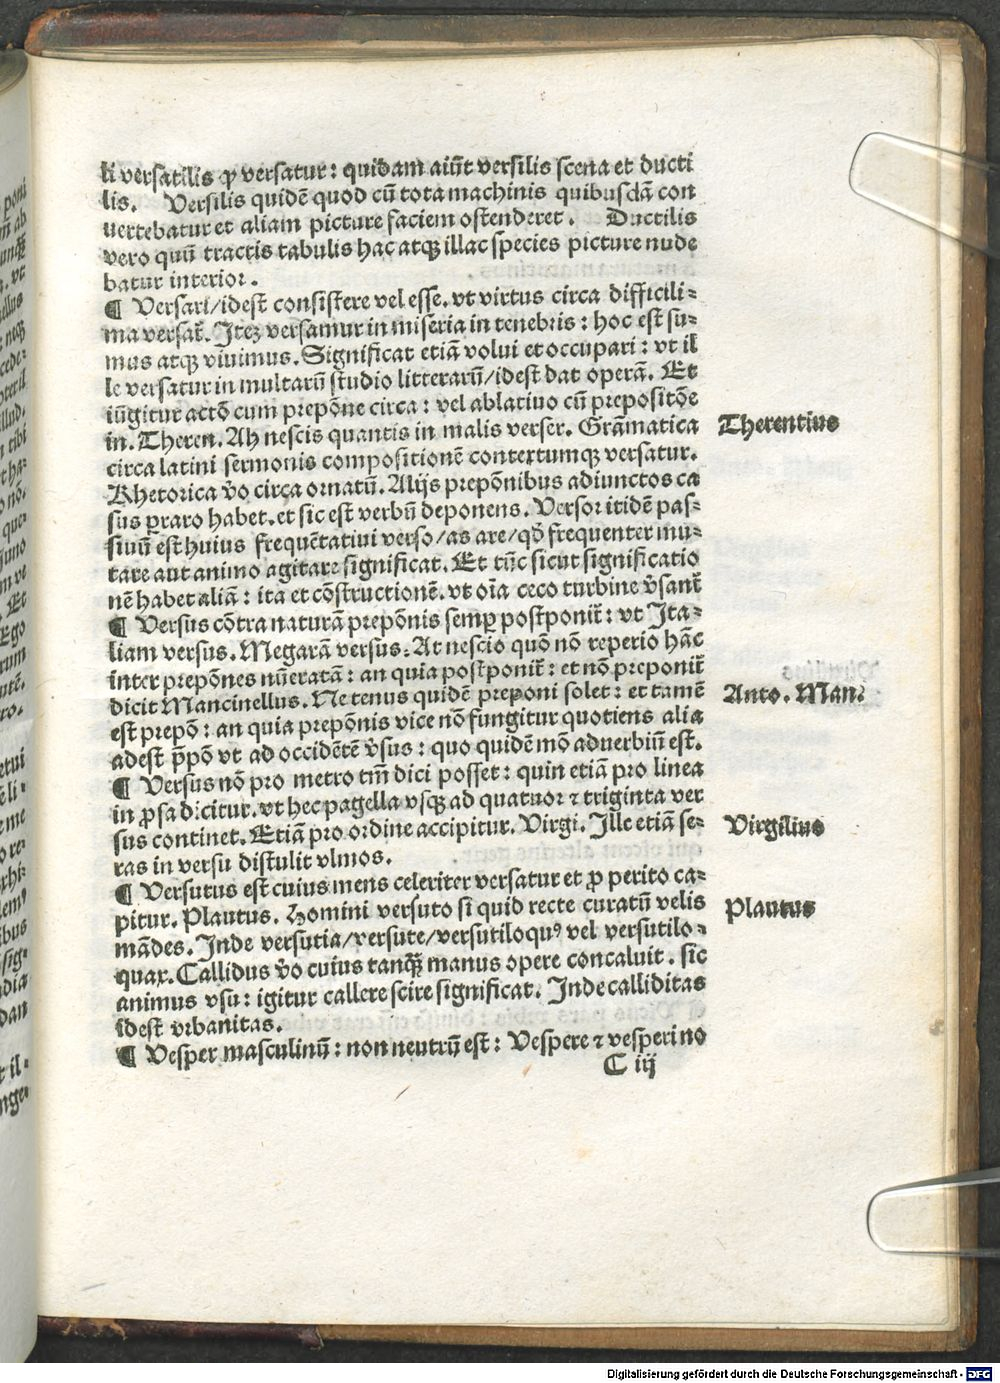 li versatilis ꝓ versatur: quidam aiũt versilis scena et ducti
lis. Versilis quidẽ quod cũ tota machinis quibusdã con
uertebatur et aliam picture faciem ostenderet. Ductilis
vero quũ tractis tabulis hac atqꝫ illac species picture nude
batur interior.
¶ Versari/idest consistere vel esse. vt virtus circa difficili⸗
ma versat̃. Iteꝫ versamur in miseria in tenebris: hoc est su⸗
mus atqꝫ viuimus. Significat etiã volui et occupari: vt il
le versatur in multarũ studio litterarũ/idest dat operã. Et
iũgitur actõ cum prepõne circa: vel ablatiuo cũ prepositõe
in. Theren. Ah nescis quantis in malis verser. Grãmatica
circa latini sermonis compositionẽ contextumqꝫ versatur.
Rhetorica v̉o circa ornatũ. Alijs prepõnibus adiunctos ca
sus ꝑraro habet. et sic est verbũ deponens. Versor itidẽ pas⸗
siuũ est huius frequẽtatiui verso/as are/qd̉ frequenter mu⸗
tare aut animo agitare significat. Et tũc sicut significatio
nẽ habet aliã: ita et cõstructionẽ. vt oĩa ceco turbine v̉sant̃
¶ Versus cõtra naturã prepõnis semꝑ postponit̃: vt Ita⸗
liam versus. Megarã versus. At nescio quõ nõ reperio hãc
inter prepõnes nũeratã: an quia postponit̃: et nõ preponit̃
dicit Mancinellus. Ne tenus quidẽ preponi solet: et tamẽ
est prepõ: an quia prepõnis vice nõ fungitur quotiens alia
adest p̃põ vt ad occidẽtẽ v̉sus: quo quidẽ mõ aduerbiũ est.
¶ Versus nõ pro metro tm̃ dici posset: quin etiã pro linea
in ꝓsa dicitur. vt hec pagella vsqꝫ ad quatuor ⁊ triginta ver
sus continet. Etiã pro ordine accipitur. Virgi. Ille etiã se⸗
ras in versu distulit vlmos.
¶ Versutus est cuius mens celeriter versatur et ꝓ perito ca⸗
pitur. Plautus. Homini versuto si quid recte curatũ velis
mãdes. Inde versutia/versute/versutiloquꝰ vel versutilo⸗
quax. Callidus v̉o cuius tanqꝫ̃ manus opere concaluit. sic
animus vsu: igitur callere scire significat. Inde calliditas
idest vrbanitas.
¶ Vesper masculinũ: non neutrũ est: Vespere ⁊ vesperi no
C iij
Therentius
Anto. Man⁊
Virgilius
Plautus
Digitalisierung gefördert durch die Deutsche Forschungsgemeinschaft - DFG